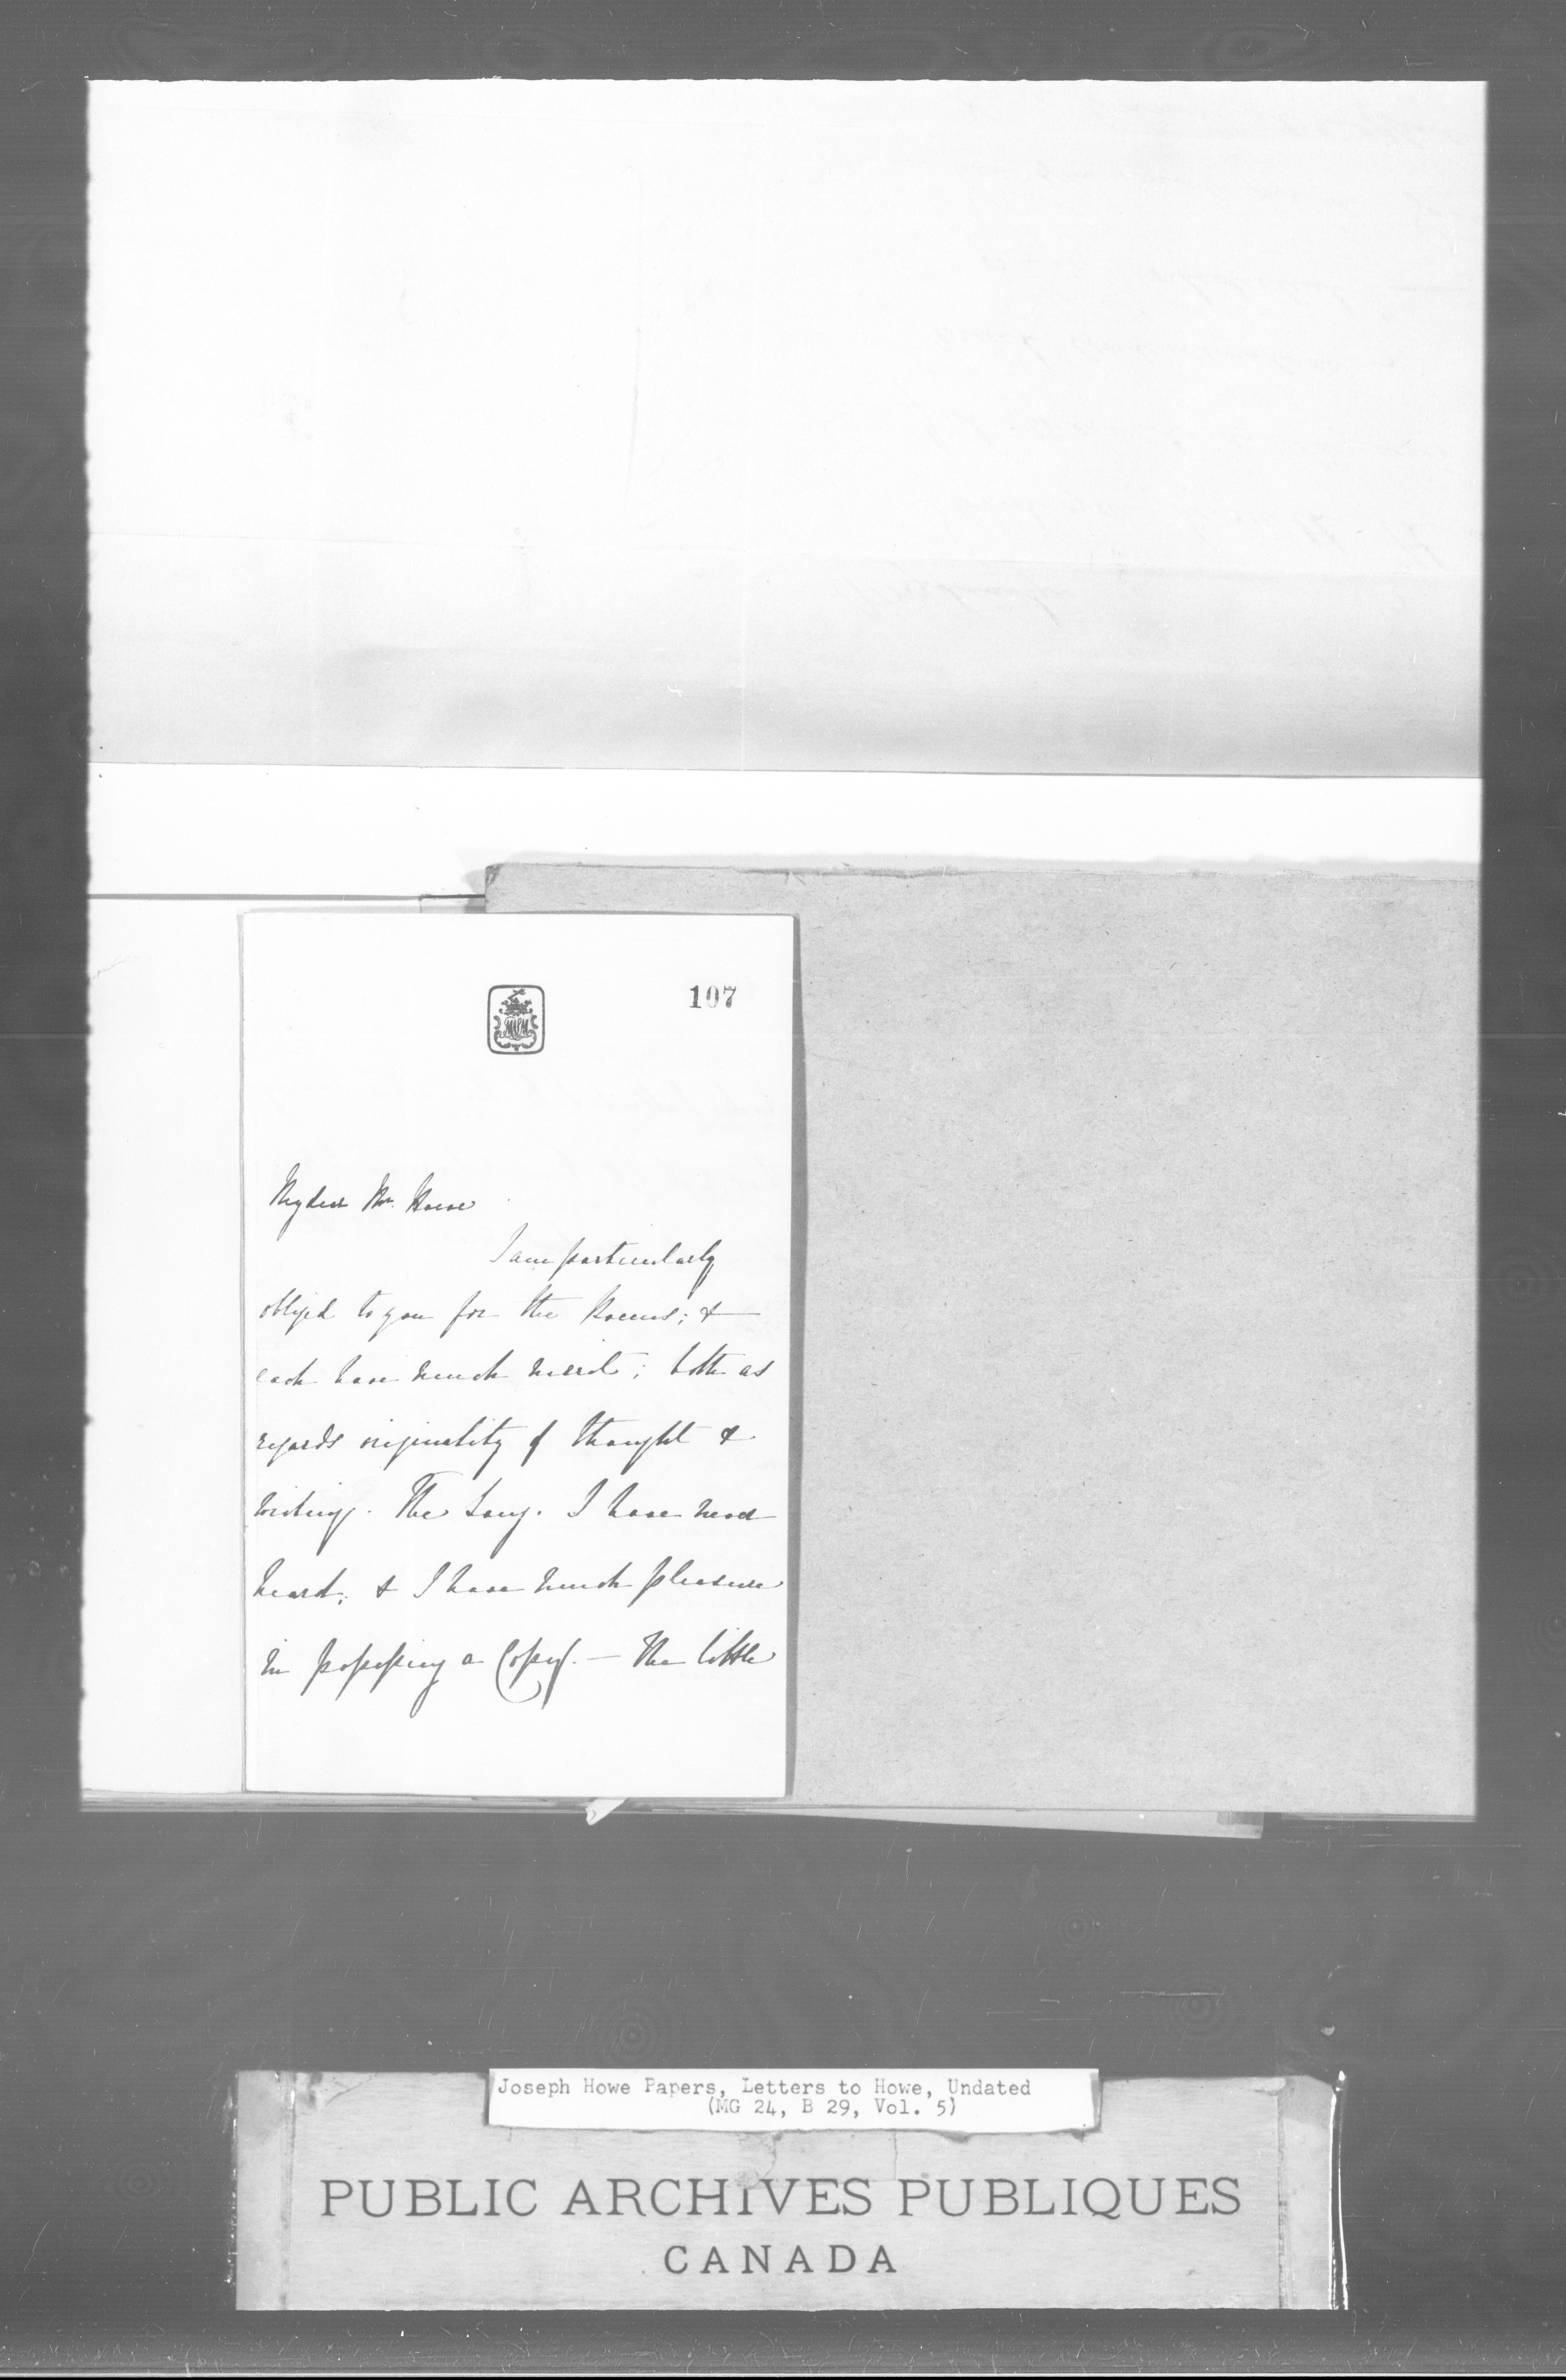 107
My dear Mr. Howe
I am particularly
obliged to you for the Poems; &
each have much merit; both as
regards originality of thought &
writing. The Song. I have
heard; & I have much pleasure
in possessing a Copy. — The little
Joseph Howe Papers, Letters to Howe, Undated
(MG 24, B 29, Vol. 5)
PUBLIC ARCHIVES PUBLIQUES
CANADA